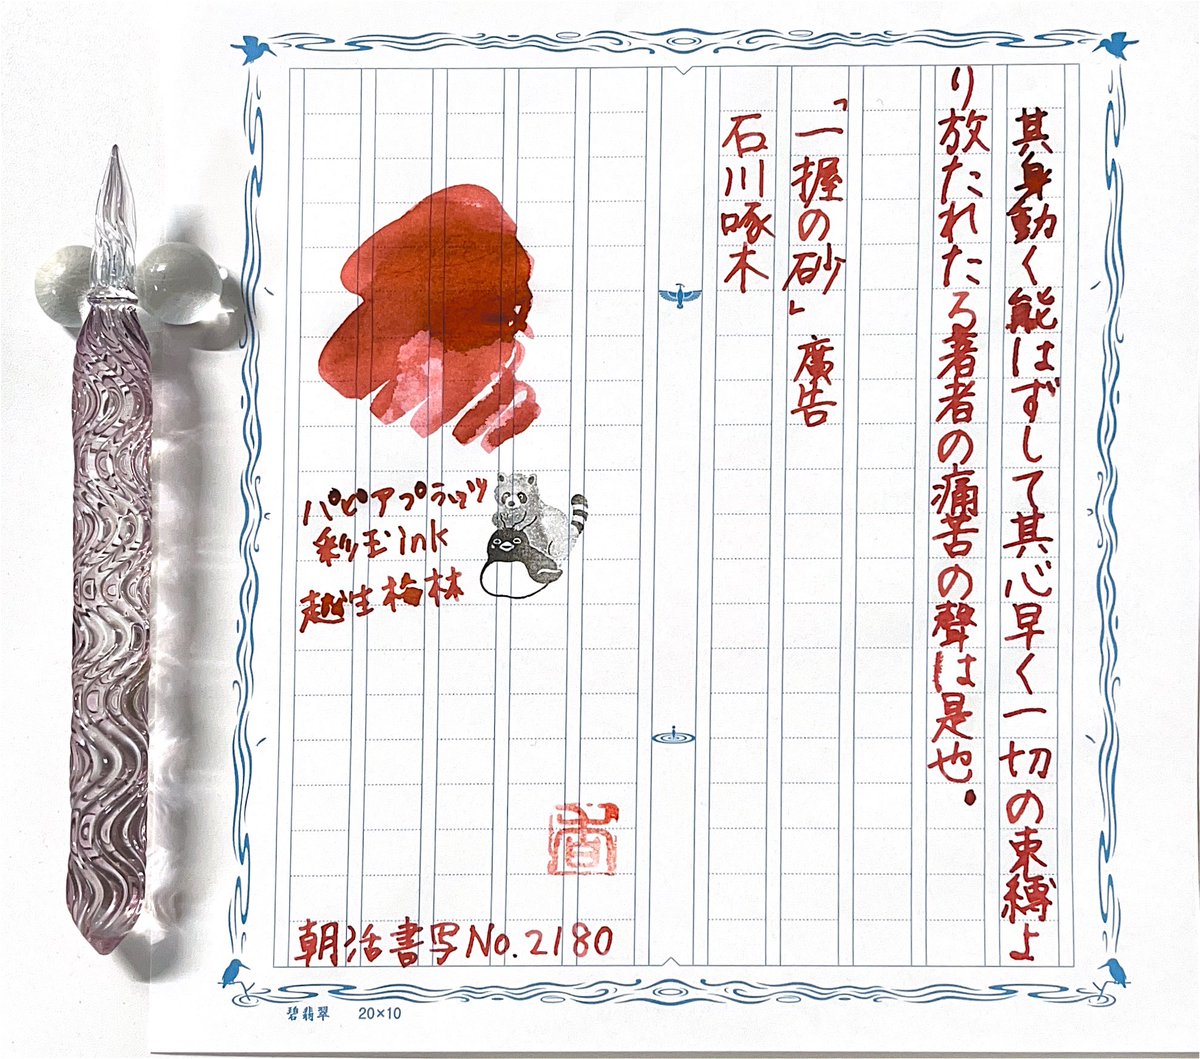 其身動く能はずして其心早く一切の束縛よ
り放たれたる著者の痛苦の聲は是也.
「一握の砂」廣告
石川啄木
パピアプラッツ
彩玉ink
越生梅林
朝活書写No.2180
碧翡翠 20×10